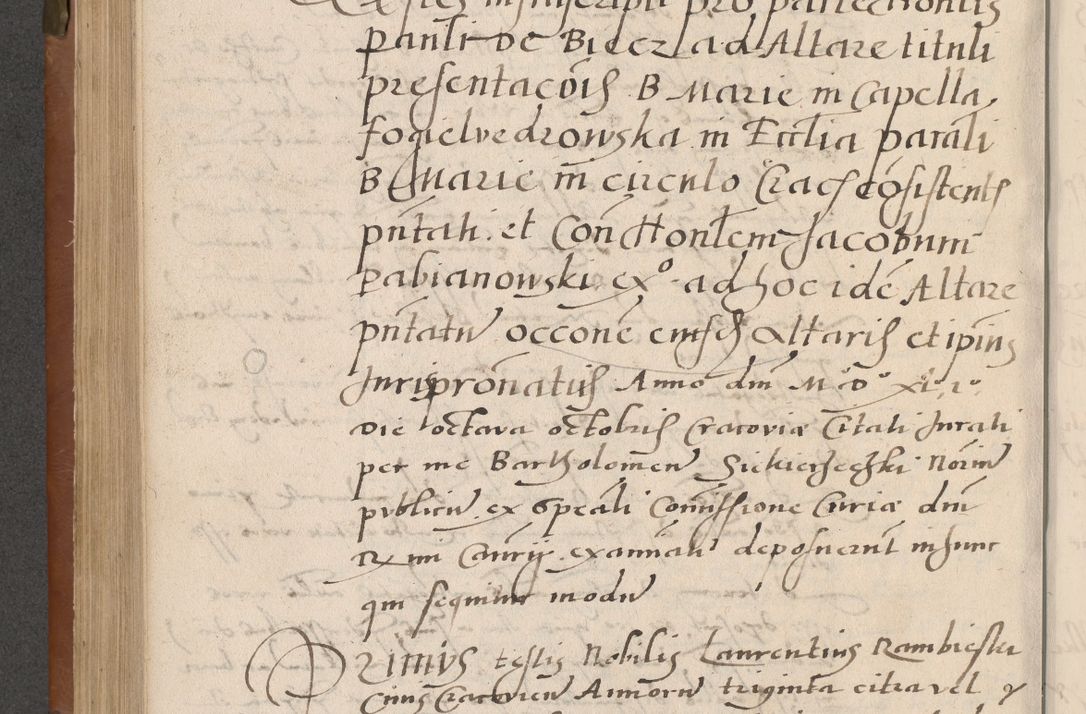 Testes infrascripti pro parte Honlis
Pauli de Biecz ad Altare tituli
presentacois B Marie in Capella
Fogielvedrowska in Ecclia parali
B Marie in circulo Crac cosistents
pntati et Con Honlem Jacobum
Pabianowski ex° ad hoc ide Altare
pntatu occone eiusd Altaris et ipius
Jurispronatus Anno dni M° D° XL° 1°
Die octava octobris Cracoviæ Citati Jurati
per me Bartholomeu Siekierzeczki Noriu
publicu ex speali Comissione Curiæ dni
R mi Examinati deposuerut infune
qui sequitur modu
Primus testis Nobilis Laurentius Rambieski
Civis Cracovien Annoru triginta citra vel